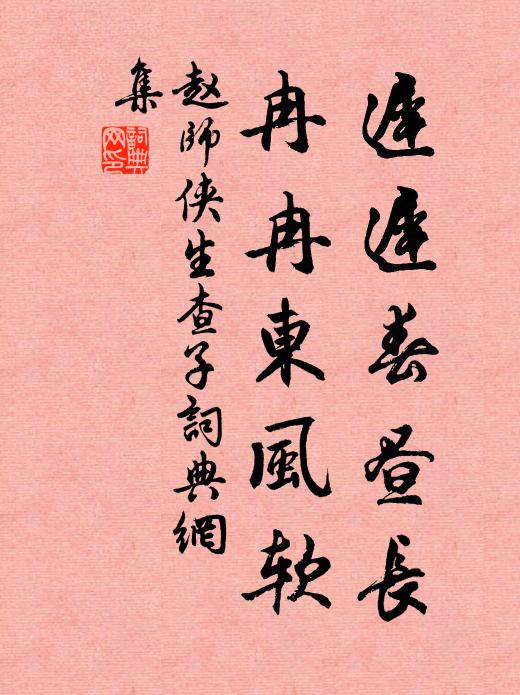 遲遲春晝長
冉冉東風軟
赵師侠生查子詞典網
集
詞典網印